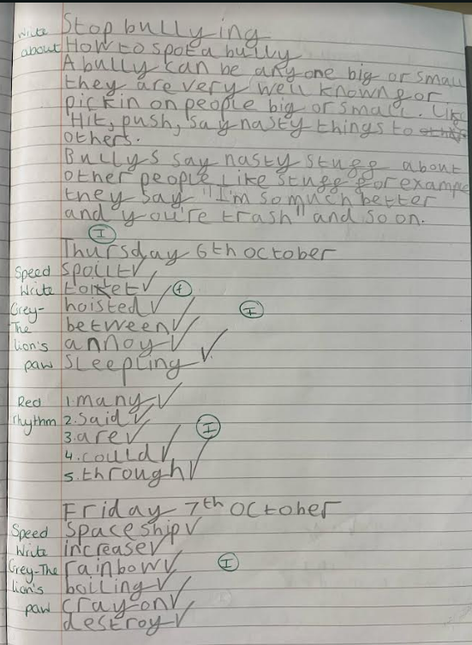 Write Stop bullying
about How to spot a bully
A bully can be any one big or small
they are very well known for
pickin on people big or small. Like
Hit, push, say nasty things to
others.
Bullys say nasty stuff about
other people Like stuff for example
they say "I'm so much better
and you're trash" and so on.
I
Thursday 6th October
Speed spoilt
Write
Grey- hoisted I
The between
Lion's annoy
paw sleepling
Red 1. many
rhythm 2. said
3. are I
4. could
5. through
Friday 7th October
Speed spaceship
Write increase
Grey-The rainbow I
Lion's boiling
paw crayon
destroy